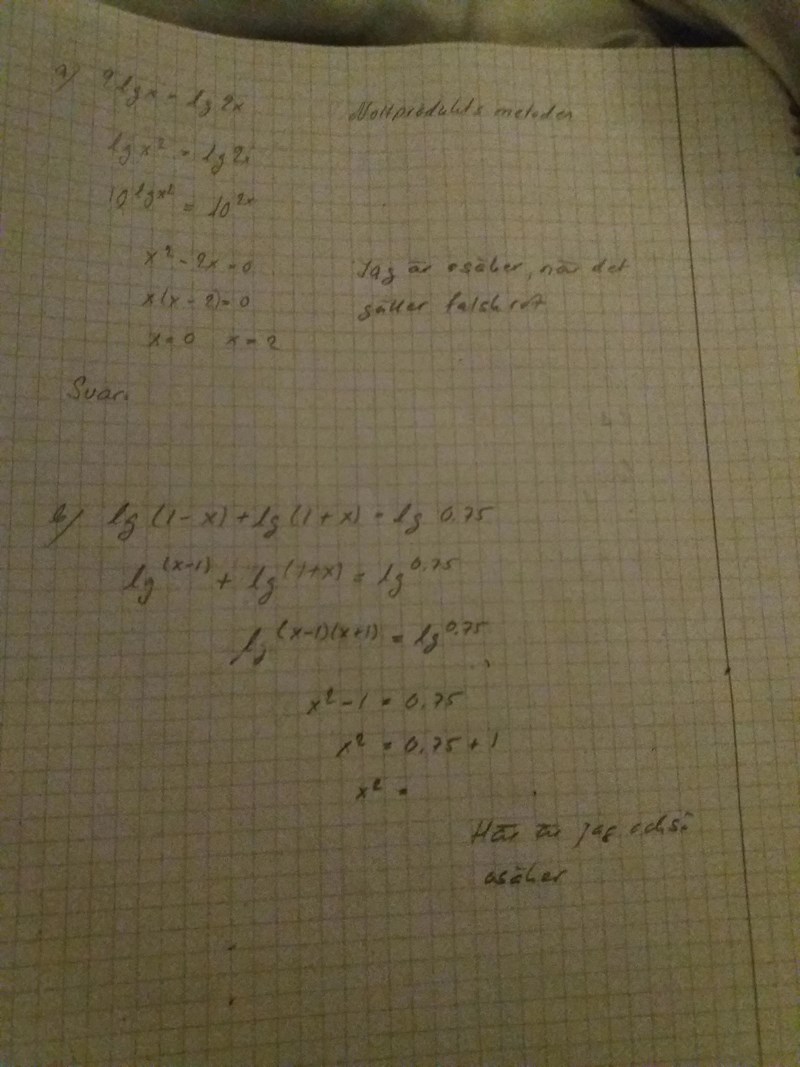 a) 2lgx = lg2x
Nollprodukts metoden
lgx² = lg2x
10^lgx² = 10^2x
x² - 2x = 0
Jag är osäker, när det
x(x - 2) = 0
gäller falsk rot
x = 0 x = 2
Svar:
b) lg(1-x) + lg(1+x) = lg 0.75
lg^(x-1) + lg^(1+x) = lg^0.75
lg^(x-1)(x+1) = lg^0.75
x² - 1 = 0.75
x² = 0.75 + 1
x² =
Här är jag också
osäker